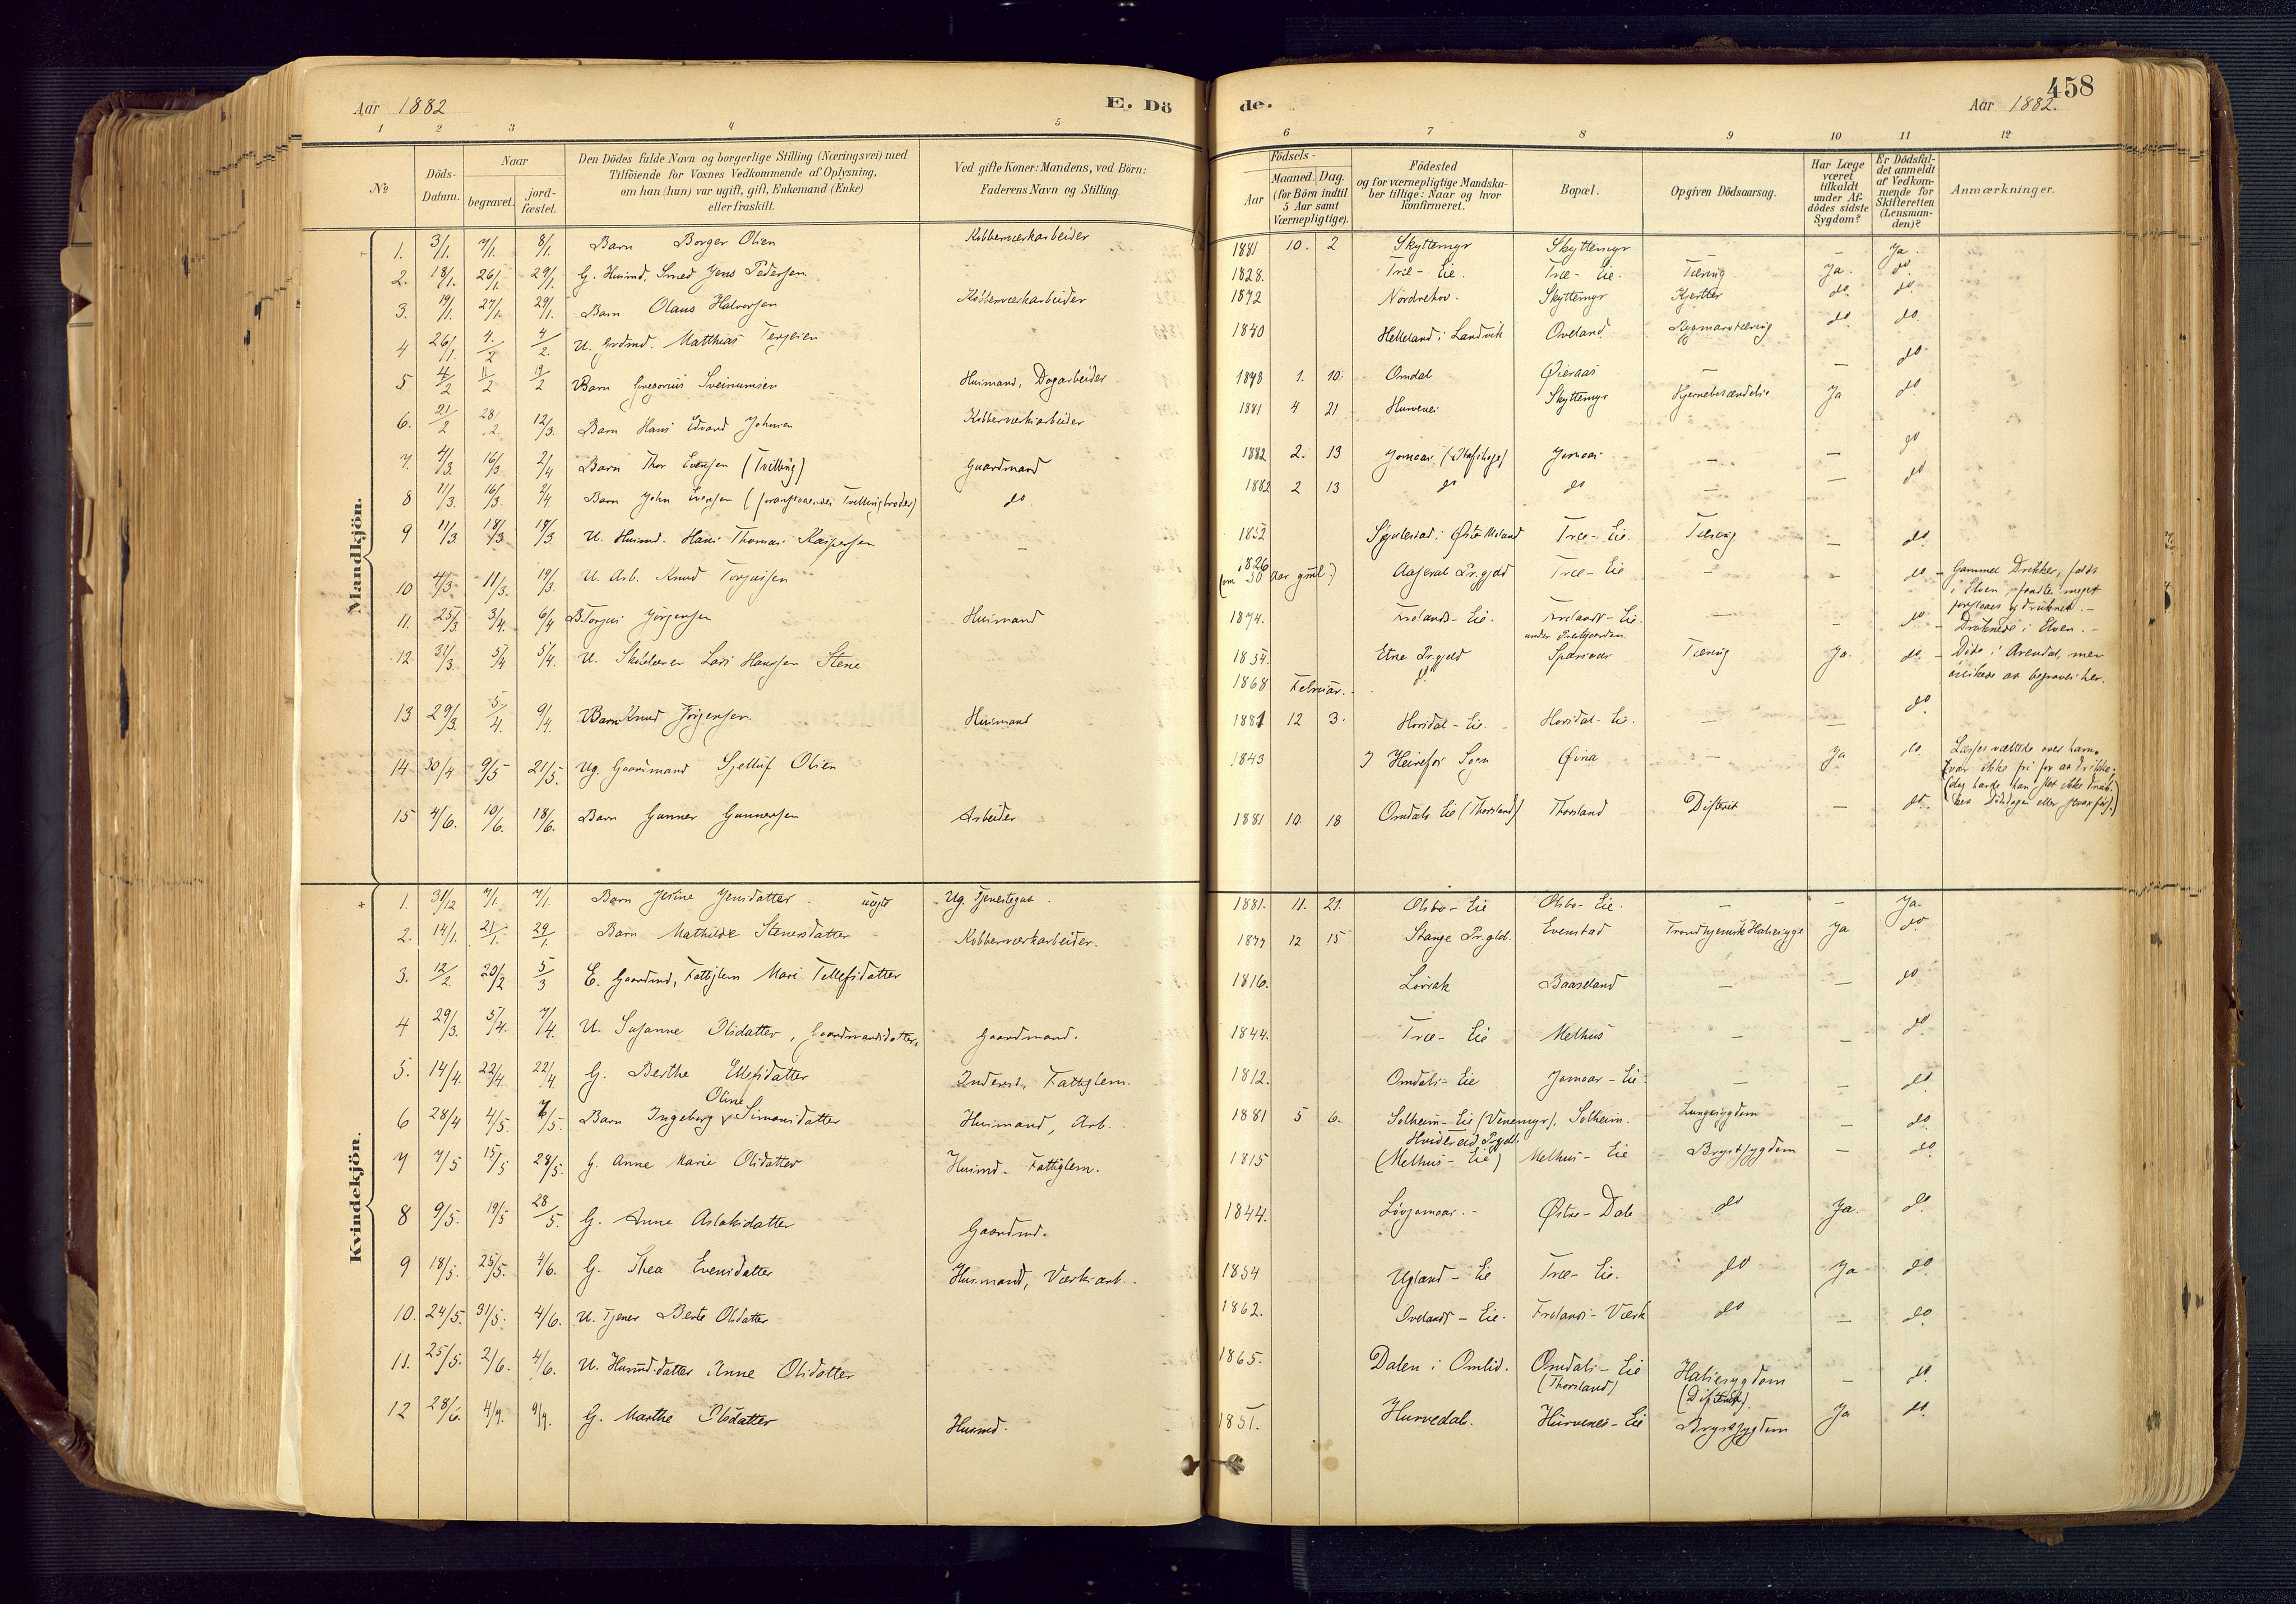 458
Aar 1882 E. Dö
de. Aar 1882.
1 2 3 4 5
6 7 8 9 10 11 12
№
Döds-Datum.
Naar
begravet.
jord-fæstet.
Den Dödes fulde Navn og borgerlige Stilling (Næringsvei) med
Tilföiende for Voxnes Vedkommende af Oplysning,
om han (hun) var ugift, gift, Enkemand (Enke)
eller fraskilt.
Ved gifte Koner: Mandens, ved Börn:
Faderens Navn og Stilling.
Födsels-
Aar
Maaned. Dag.
(for Börn indtil
5 Aar samt
Værnepligtige).
Födested
og for værnepligtige Mandska-
ber tillige: Naar og hvor
konfirmeret.
Bopæl.
Opgiven Dödsaarsag.
Har Læge
været
tilkaldt
under Af-
dödes sidste
Sygdom?
Er Dödsfal-
det anmeldt
af Vedkom-
mende for
Skifteretten
(Lensman-
den)?
Anmærkninger.
Mandkjön.
1. 3/1. 7/1. 8/1. Barn Borger Olsen Kobberværkarbeider 1881 10. 2 Skyttemyr Skyttemyr — — Ja.
2. 18/1. 26/1. 29/1. G. Husmd. Smed Jens Pedersen 1828. Træ - Eie. Træ - Eie. Tæring Ja. do.
3. 19/1. 27/1. 29/1. Barn Olaus Halvorsen Kobberværkarbeider 1872 Nordrehov. Skyttemyr do. do.
4 26/1. 4/2 4/2. U. Grdmd. Matthias Terjesen 1840 Helleland i Landvik Oveland Rygmarvstæring do. do.
5 4/2 11/2 19/2 Barn Gregorius Sveinumsen Husmand, Dagarbeider 1878 1. 10. Omdal Øieraas — — do.
6. 21/2 28/2. 12/3. Barn Hans Edvard Johnsen Kobberværksarbeider 1881 4 21 Hurvenes Skyttemyr Hjernebetændelse Ja do.
7. 4/3. 16/3 2/4 Barn Thor Evensen (Tvilling) Gaardmand 1882 2. 13 Jomaas Jomaas — — do
8 11/3. 16/3. 2/4. Barn John Evensen (foranstaaendes Tvillingbroder) do 1882 2 13 do do — — do
9 11/3. 18/3. 19/3. U. Husmd. Hans Thomas Kaspersen — 1852 i Øster Moland Træ - Eie. Tæring — do.
10 4/3. 11/3. 19/3. U. Arb. Knud Torjussen 1826 (om 50 Aar gml:) Aaseral Pr.gjeld Træ - Eie — — do — Gammel Drikker, faldt
i Elven, fandtes meget
forslaaet og druknet. —
11. 25/3. 3/4. 6/4 B. Torjus Jørgensen Husmand 1874. Frolands - Eie. Frolands - Eie. — — do — Druknede i Elven. —
under Præstgaarden
12 31/3. 5/4 5/4. U. Skolelærer Lars Hanssen Stene 1854. Etne Pr.gjeld Tæring Ja. do — Døde i Arendal, men
1868 Februar. do ønskede at begraves her.
13 29/3. 5/4. 9/4. Barn Knud Jørgensen Husmand 1881 12 3. Horsdal - Eie. Horsdal - Eie. — — do
14. 30/4 9/5 21/5. Ug. Gaardmand Sjelluf Olsen 1843 I Heirefos Sogn Øina — Ja do. Læsset væltede over ham.
(var ikke fri for at drikke;
15 4/6. 10/6. 18/6. Barn Gunner Gunnersen Arbeider 1881 10. 18 Omdals Eie (Thorsland) Thorsland Difterit — do.
Kvindekjön.
1. 31/12 7/1. 7/1. Barn Jesine Jensdatter uægte Ug. Tjenestegut. 1881. 11. 21. Olsbo - Eie Olsbo - Eie. — — Ja.
2. 14/1. 21/1. 29/1. Barn Mathilde Stenersdatter Kobberværkarbeider. 1877 12 15 Stange Pr.gld. Evenstad Trondhjemsk Halssyge Ja do.
3. 12/2. 20/2 5/3 E. Gaardmd, Fattiglem Mari Tellefsdatter 1816. Løvrak Baaseland — — do
4 29/3. 5/4. 7/4. U. Susanne Olsdatter, Gaardmandsdatter. Gaardmand. 1844. Træ - Eie Melhus — — do
5. 14/4. 22/4. 22/4. G. Berthe Ellefsdatter Inderst, Fattiglem. 1812. Omdals - Eie Jomaas - Eie. — — do.
Oline
6 28/4 4/5. 7/5. Barn Ingeborg Simonsdatter Husmand, Arb. 1881 5 6. Solheim - Eie (Venemyr), Solheim. Lungesygdom — do.
Hvidesed Prgd.
7 7/5 15/5 28/5. G. Anne Marie Olsdatter Husmd. - Fattiglem. 1815 (Melhus - Eie) Melhus - Eie Brystsygdom — do.
8 9/5. 19/5 28/5. G. Anne Aslaksdatter Gaardmd. 1844. Løvjomaas. - Østre - Dale do Ja. do.
9 18/5. 25/5. 4/6. G. Thea Evensdatter Husmand, Værksarb. 1854 Ugland - Eie Træ - Eie. do Ja do
10. 24/5. 31/5. 4/6. U. Tjener Berte Olsdatter 1862. Ovelands - Eie. Frolands - Værk do — do.
11. 25/5. 2/6. 4/6. U. Husmd.datter Anne Olsdatter 1865. Dalen i Omlid. Omdals - Eie (Thorsland) Halssygdom (Difterit). — do.
12 28/6. 4/7. 9/7. G. Marthe Olsdatter Husmd. 1851. Hurvedal. Hurvenes - Eie Brystsygdom Ja do.